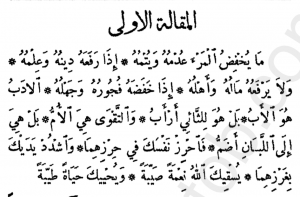 المقالة الاولى
مَا يُخْفِضُ ٱلْمَرْءَ عُدْمُهُ وَيُتْمُهُ * إِذَا رَفَعَهُ دِينُهُ وَعِلْمُهُ *
وَلَا يَرْفَعُهُ مَالُهُ وَأَهْلُهُ * إِذَا خَفَضَهُ فُجُورُهُ وَجَهْلُهُ * ٱلْأَدَبُ
هُوَ ٱلْأَبُ * بَلْ هُوَ لِلثَّأْيِ أَرْأَبُ * وَٱلتَّقْوَى هِيَ ٱلْأُمُّ * بَلْ هِيَ
إِلَى ٱللَّبَانِ أَضَمُّ * فَأَحْرِزْ نَفْسَكَ فِي حِرْزِهِمَا * وَٱشْدُدْ يَدَيْكَ
بِغَرْزِهِمَا * يَسْقِيكَ ٱللّٰهُ نِعْمَةً صَيِّبَةً * وَيُحْيِيكَ حَيَاةً طَيِّبَةً